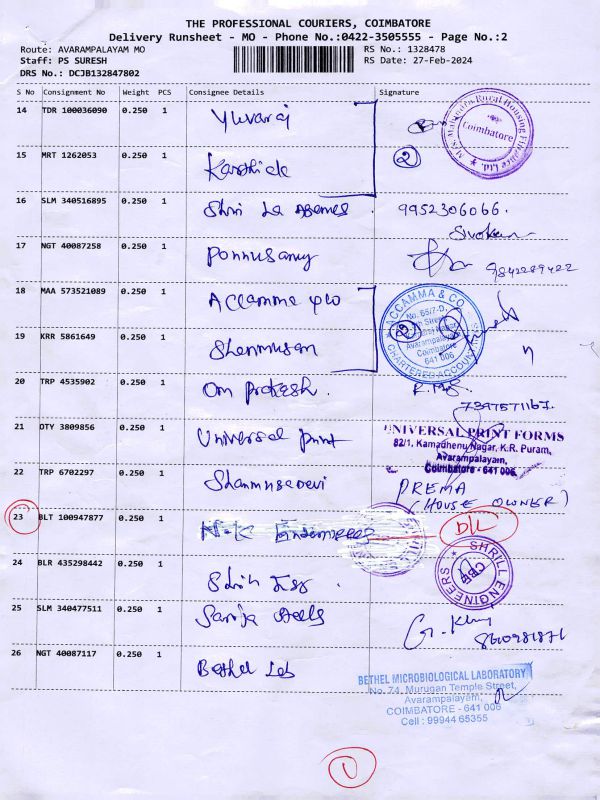 THE PROFESSIONAL COURIERS, COIMBATORE
Delivery Runsheet - MO - Phone No.:0422-3505555 - Page No.:2
Route: AVARAMPALAYAM MO
RS No.: 1328478
Staff: PS SURESH
RS Date: 27-Feb-2024
DRS No.: DCJB132847802
S No Consignment No Weight PCS Consignee Details Signature
14 TDR 100036090 0.250 1 Yuvaraj
M/s. Mahindra Rural Housing Finance Ltd. Coimbatore
15 MRT 1262053 0.250 1 Karthick 2
16 SLM 340516895 0.250 1 Shri La 9952306066.
17 NGT 40087258 0.250 1 Ponnusamy 9842289422
18 MAA 573521089 0.250 1 Accamma
ACCAMMA & CO
No. 65/7-D,
Avarampalayam
Coimbatore
641 006
CHARTERED ACCOUNTANTS
19 KRR 5861649 0.250 1 Shanmugam
20 TRP 4535902 0.250 1 Om prakash.
7397571167.
21 DTY 3809856 0.250 1 Universal print
UNIVERSAL PRINT FORMS
82/1, Kamadhenu Nagar, K.R. Puram,
Avarampalayam,
Coimbatore - 641 006
22 TRP 6702297 0.250 1 Shanmugadevi
PREMA
(HOUSE OWNER)
23 BLT 100947877 0.250 1 D/L
24 BLR 435298442 0.250 1
SHRILL ENGINEERS
CBE
25 SLM 340477511 0.250 1
26 NGT 40087117 0.250 1 Bethel Lab
BETHEL MICROBIOLOGICAL LABORATORY
No. 74, Murugan Temple Street,
Avarampalayam,
COIMBATORE - 641 006
Cell : 99944 65355